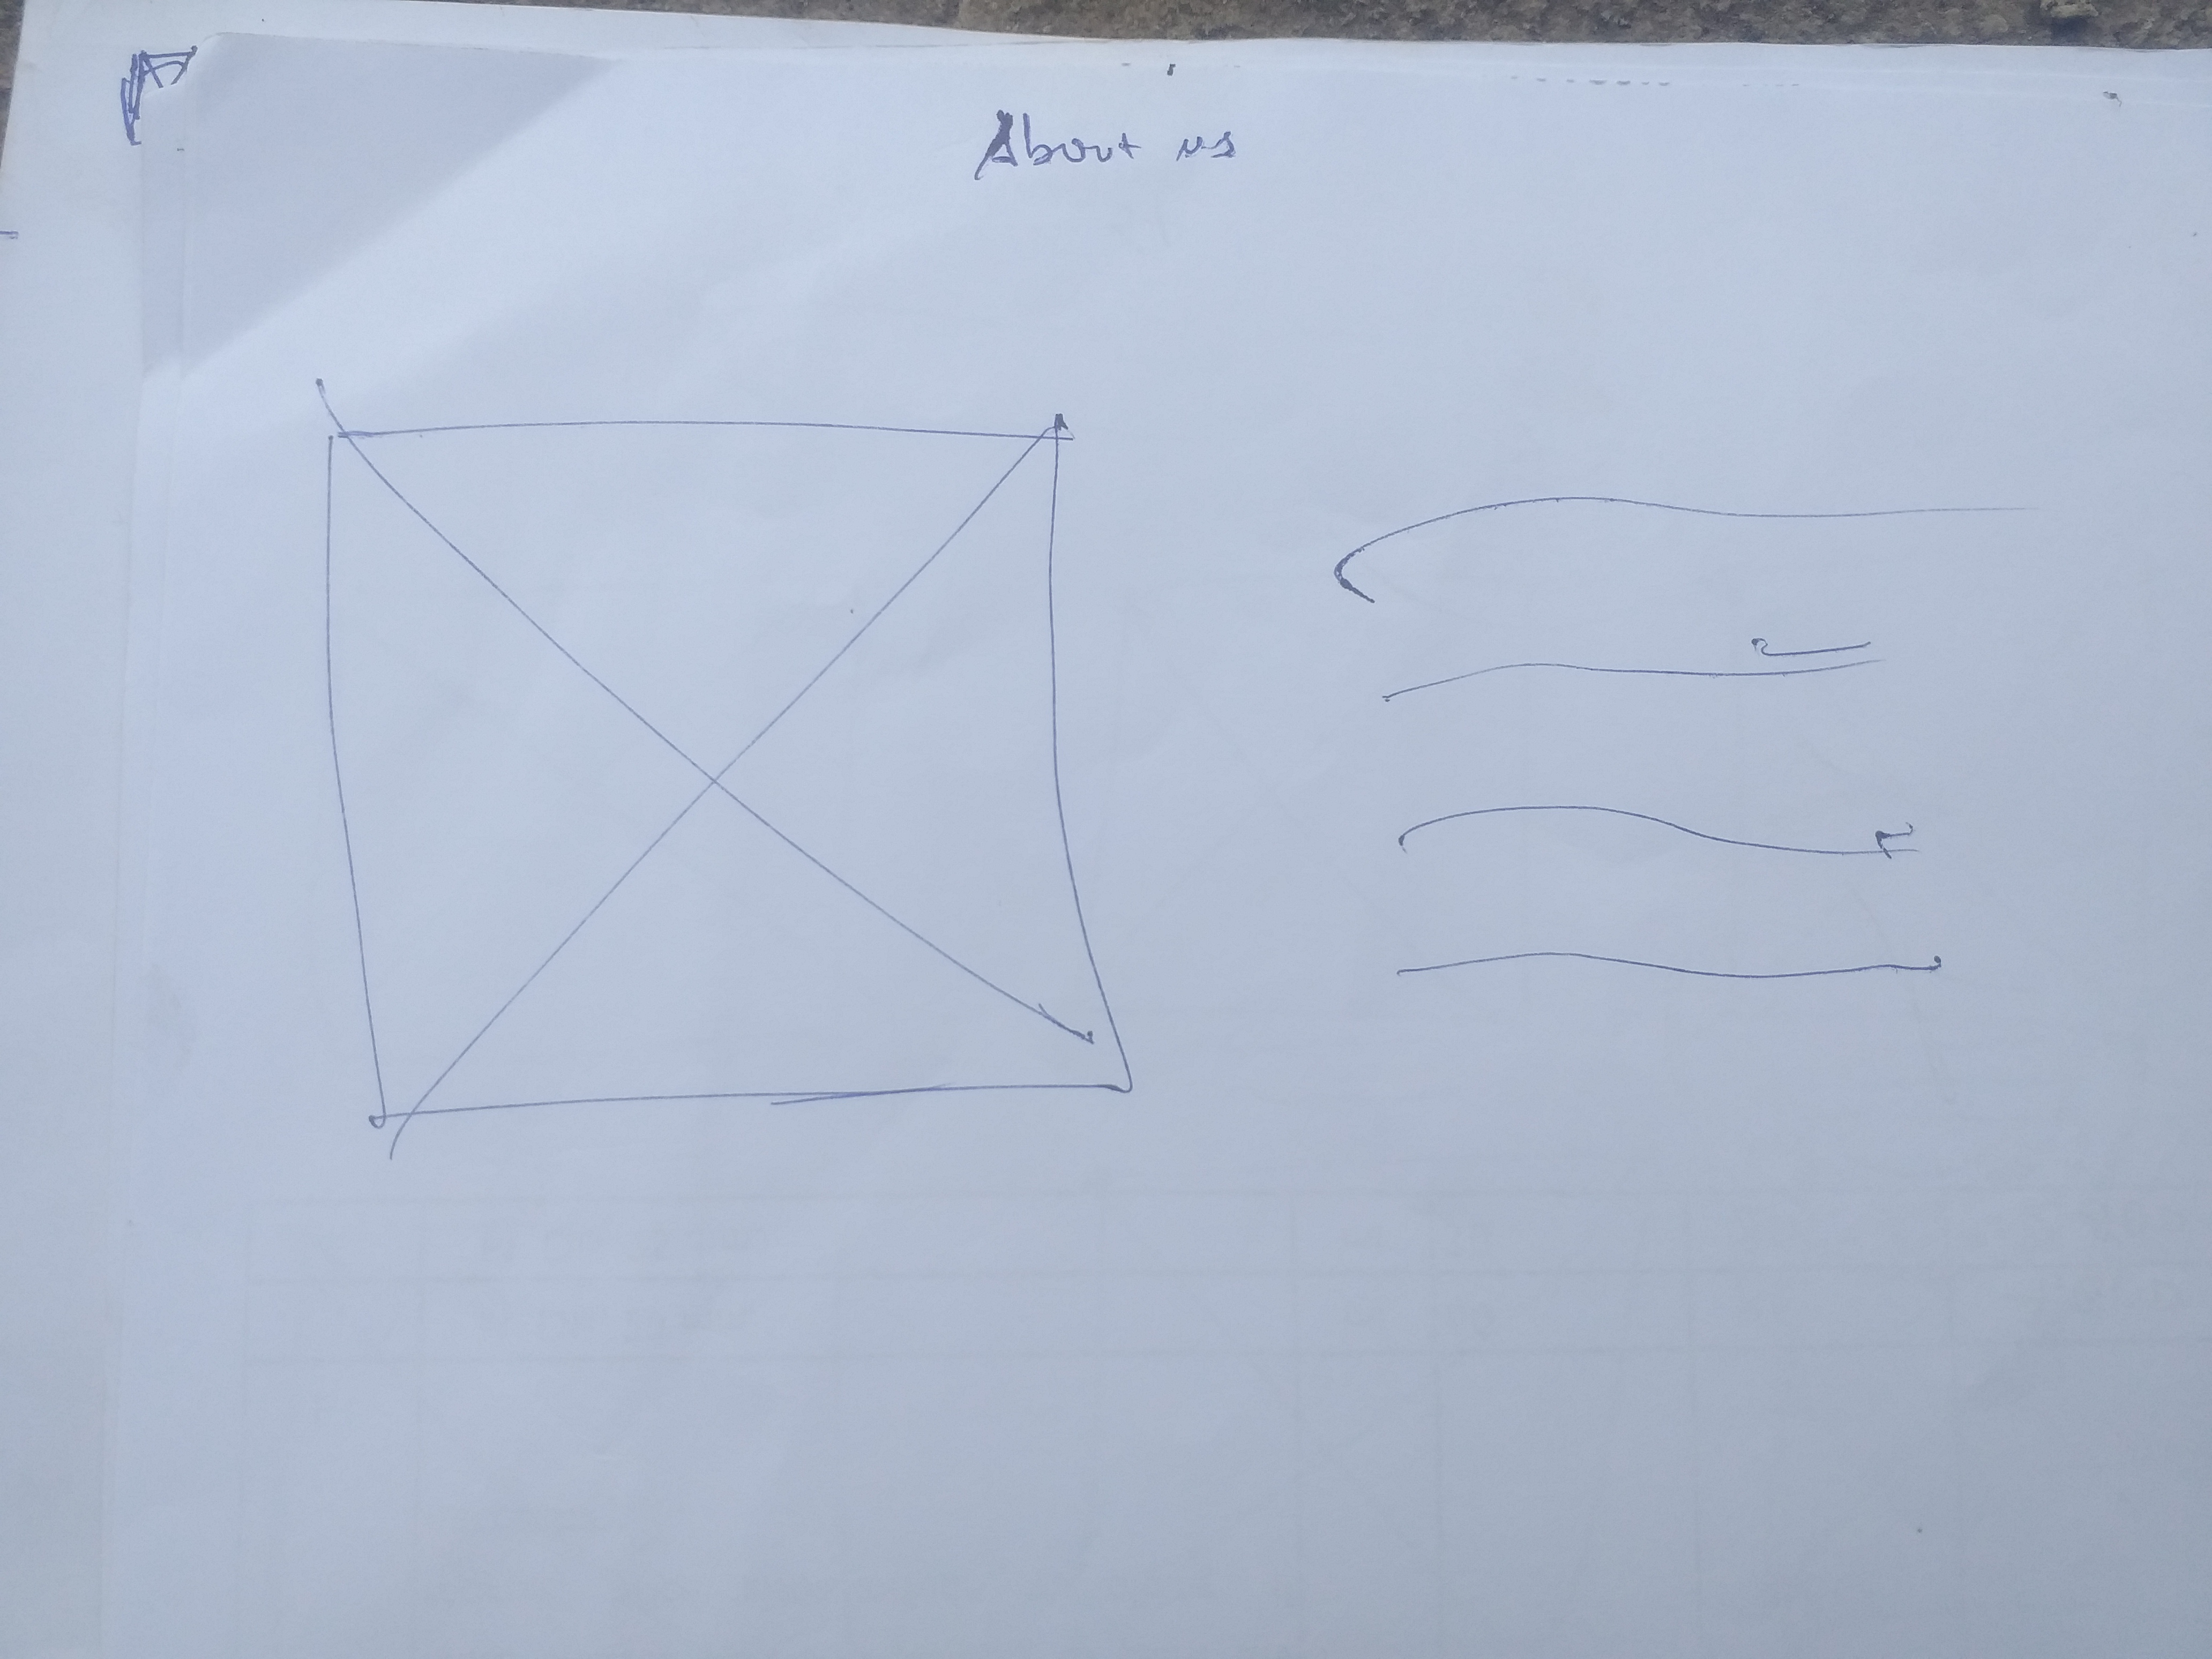 About us